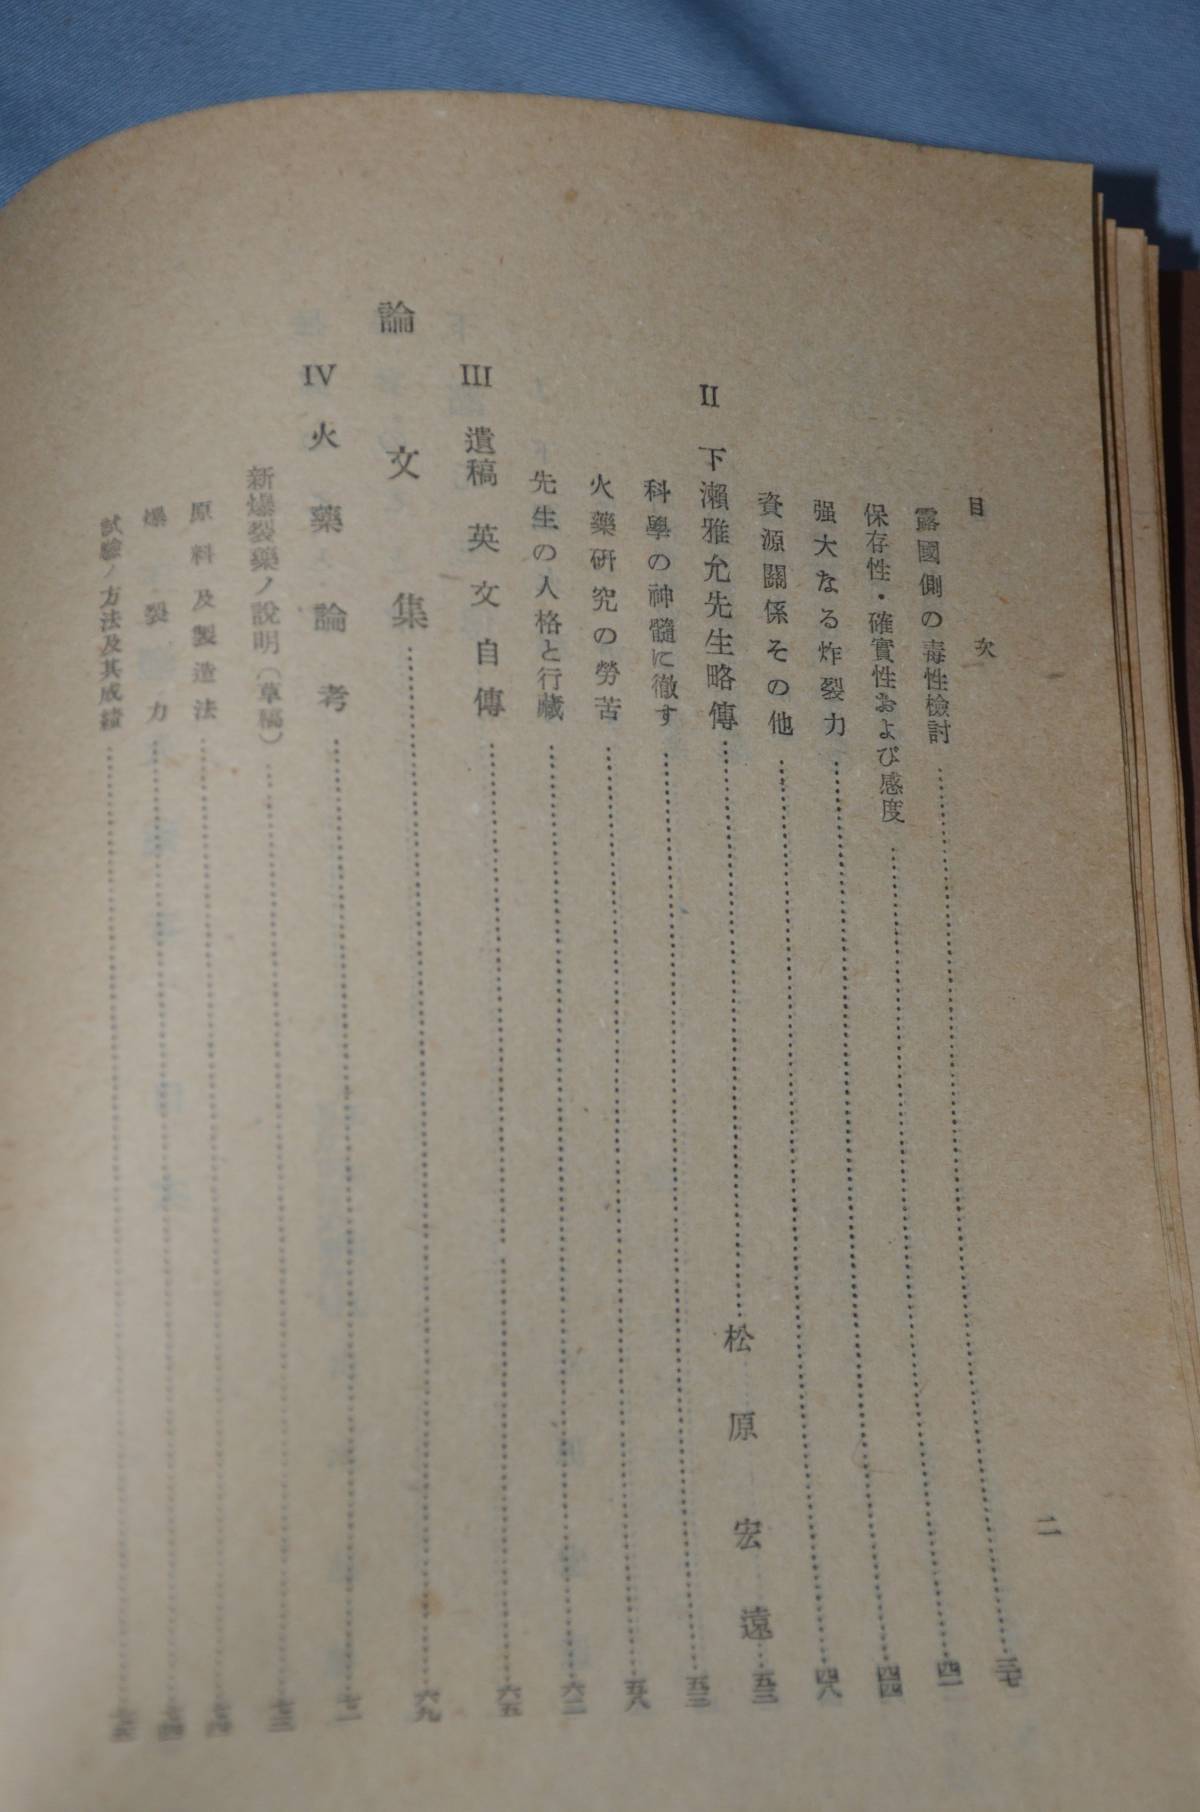 目次
二
露國側の毒性檢討……三七
保存性・確實性および感度……四一
强大なる炸裂力……四四
資源關係その他……四八
II 下瀨雅允先生略傳……松原宏遠……五三
科學の神髓に徹す……五三
火藥硏究の勞苦……五八
先生の人格と行藏……六二
III 遺稿 英文自傳……六五
論文集……六九
IV 火藥論考……七一
新爆裂藥ノ說明(草稿)……七三
原料及製造法……七四
爆裂力……七四
試驗ノ方法及其成績……七五